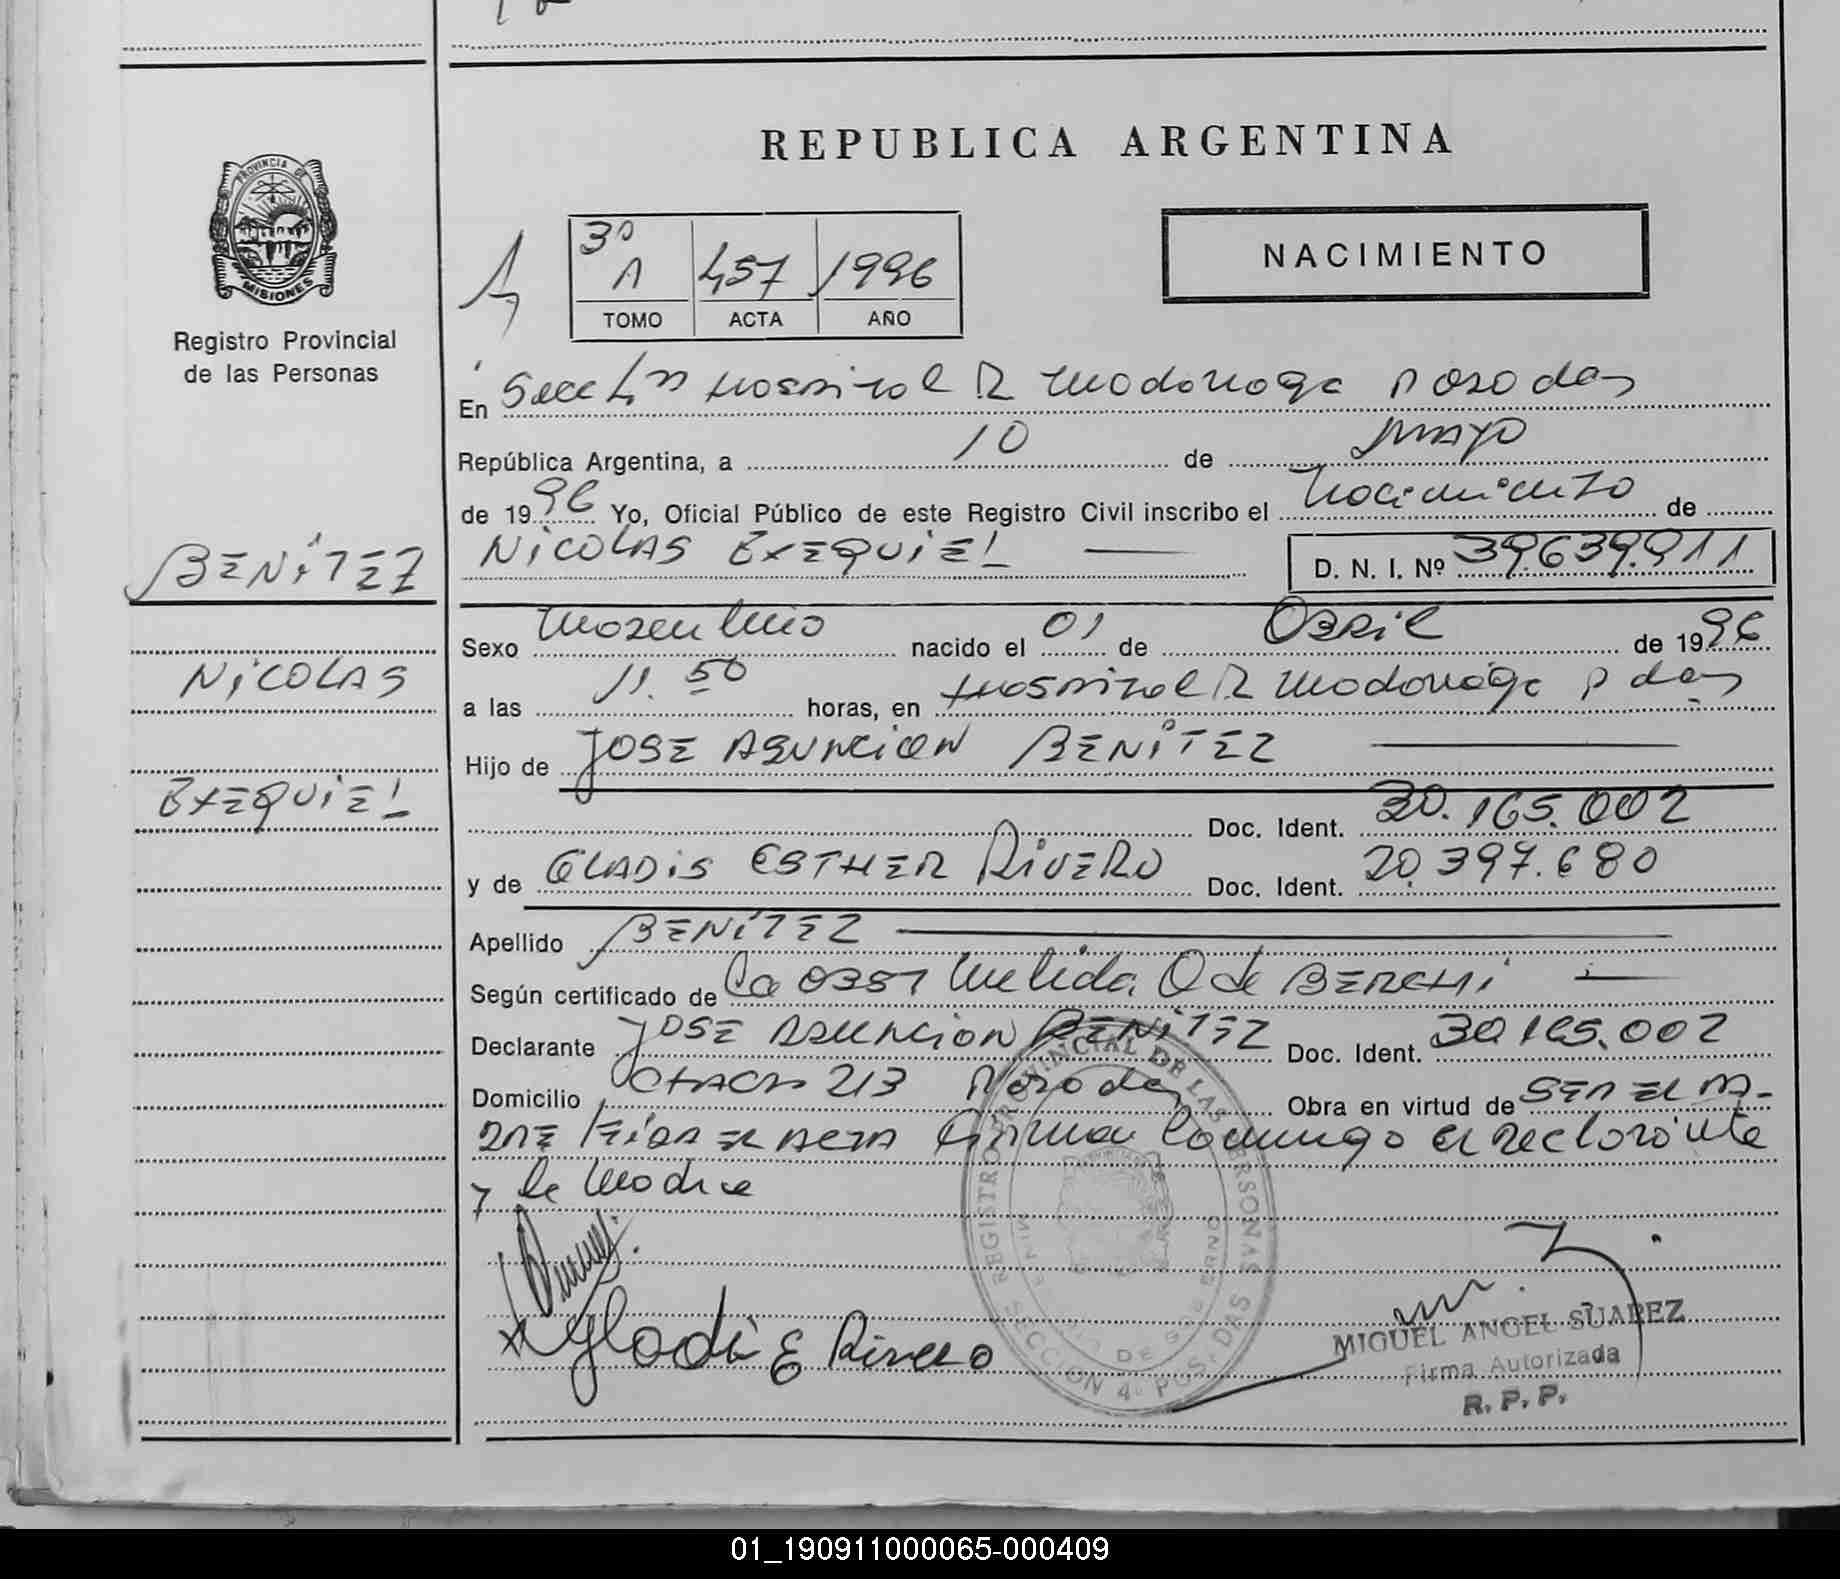 REPUBLICA ARGENTINA
PROVINCIA DE
MISIONES
Registro Provincial
de las Personas
3º
A 457 1996
TOMO ACTA AÑO
NACIMIENTO
En Secc 4ta Hospital R Madariaga Posadas
República Argentina, a 10 de mayo
de 1996 Yo, Oficial Público de este Registro Civil inscribo el Nacimiento de
BENÍTEZ
NICOLAS EXEQUIEL D. N. I. Nº 39.639.911
Sexo Masculino nacido el 01 de Abril de 1996
NICOLAS
a las 11.50 horas, en Hospital R Madariaga Pdas
Hijo de JOSE ASUNCION BENÍTEZ
EXEQUIEL
Doc. Ident. 30.165.002
y de GLADIS ESTHER RIVERO Doc. Ident. 20.397.680
Apellido BENÍTEZ
Según certificado de La Obst Melida O de
Declarante JOSE ASUNCION BENÍTEZ Doc. Ident. 30.165.002
Domicilio CHACRA 213 Posadas Obra en virtud de SER EL PA-
DRE Leida el acta firman conmigo el declarante
y la Madre
Gladi E Rivero
REGISTRO PROVINCIAL DE LAS PERSONAS
DE GOBIERNO
SECCION 4ª POSADAS
MIGUEL ANGEL SUAREZ
Firma Autorizada
R. P. P.
01_190911000065-000409